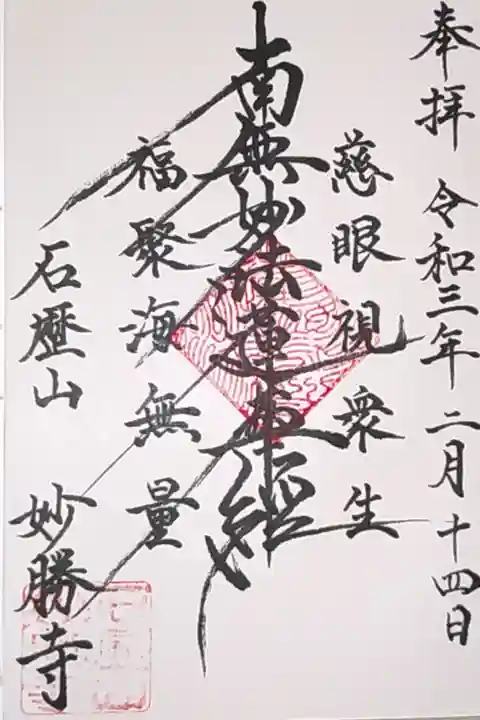 奉拝 令和三年二月十四日
慈眼視衆生
南無妙法蓮華経
福聚海無量
石壓山
妙勝寺